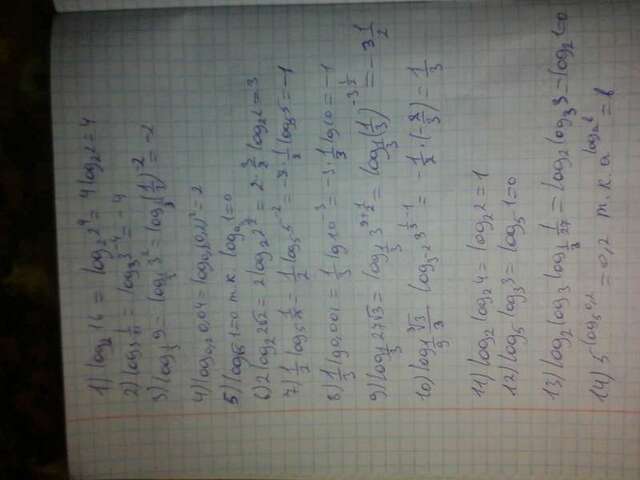 1) log₂ 16 = log₂ 2⁴ = 4 log₂ 2 = 4
2) log₃ 1/81 = log₃ 3⁻⁴ = -4
3) log_{1/3} 9 = log_{1/3} 3² = log_{1/3} (1/3)⁻² = -2
4) log₀,₂ 0,04 = log₀,₂ (0,2)² = 2
5) log√5 1 = 0 т.к. logₐ 1 = 0
6) 2 log₂ 2√2 = 2 log₂ 2^{3/2} = 2 · 3/2 log₂ 2 = 3
7) 1/2 log₅ 1/25 = 1/2 log₅ 5⁻² = -2 · 1/2 log₅ 5 = -1
8) 1/3 lg 0,001 = 1/3 lg 10⁻³ = -3 · 1/3 lg 10 = -1
9) log_{1/3} 27√3 = log_{1/3} 3^{3+1/2} = log_{1/3} (1/3)^{-3 1/2} = -3 1/2
11) log₂ log₂ 4 = log₂ 2 = 1
12) log₅ log₃ 3 = log₅ 1 = 0
13) log₂ log₃ log_{1/3} 1/27 = log₂ log₃ 3 = log₂ 1 = 0
14) 5^{log₅ 0,2} = 0,2 т.к. a^{logₐ b} = b